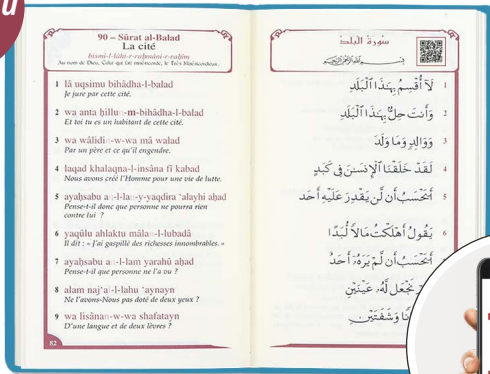 u
90 – Sûrat al-Balad
La cité
bismi-l-lâhi-r-raḥmâni-r-raḥîm
Au nom de Dieu, Celui qui fait miséricorde, le Très Miséricordieux.
1 lâ uqsimu bihâdha-l-balad
Je jure par cette cité.
2 wa anta ḥillun-m-bihâdha-l-balad
Et toi tu es un habitant de cette cité.
3 wa wâlidin-w-wa mâ walad
Par un père et ce qu'il engendre.
4 laqad khalaqna-l-insâna fî kabad
Nous avons créé l'Homme pour une vie de lutte.
5 ayaḥsabu an-l-lan-y-yaqdira 'alayhi aḥad
Pense-t-il donc que personne ne pourra rien
contre lui ?
6 yaqûlu ahlaktu mâlan-l-lubadâ
Il dit : « J'ai gaspillé des richesses innombrables. »
7 ayaḥsabu an-l-lam yarahû aḥad
Pense-t-il que personne ne l'a vu ?
8 alam naj'al-l-lahu 'aynayn
Ne l'avons-Nous pas doté de deux yeux ?
9 wa lisânan-w-wa shafatayn
D'une langue et de deux lèvres ?
82
سورة البلد
بِسْمِ اللَّهِ الرَّحْمَٰنِ الرَّحِيمِ
لَآ أُقْسِمُ بِهَٰذَا ٱلْبَلَدِ 1
وَأَنتَ حِلٌّۢ بِهَٰذَا ٱلْبَلَدِ 2
وَوَالِدٍ وَمَا وَلَدَ 3
لَقَدْ خَلَقْنَا ٱلْإِنسَٰنَ فِى كَبَدٍ 4
أَيَحْسَبُ أَن لَّن يَقْدِرَ عَلَيْهِ أَحَدٌ 5
يَقُولُ أَهْلَكْتُ مَالًا لُّبَدًا 6
أَيَحْسَبُ أَن لَّمْ يَرَهُۥٓ أَحَدٌ
نَجْعَل لَّهُۥ عَيْنَيْنِ
وَشَفَتَيْنِ